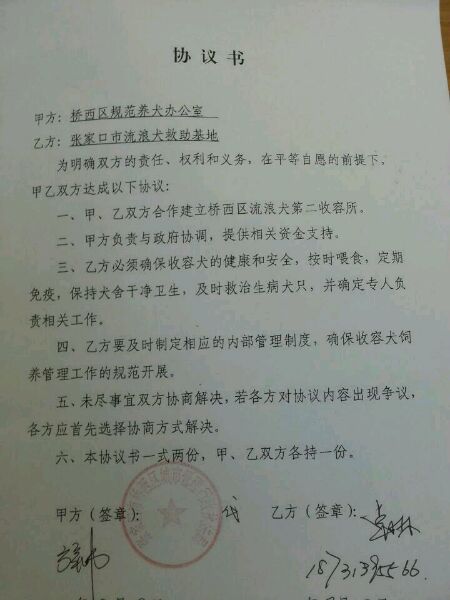 协议书
甲方：桥西区规范养犬办公室
乙方：张家口市流浪犬救助基地
为明确双方的责任、权利和义务，在平等自愿的前提下，
甲乙双方达成以下协议：
一、甲、乙双方合作建立桥西区流浪犬第二收容所。
二、甲方负责与政府协调，提供相关资金支持。
三、乙方必须确保收容犬的健康和安全，按时喂食，定期
免疫，保持犬舍干净卫生，及时救治生病犬只，并确定专人负
责相关工作。
四、乙方要及时制定相应的内部管理制度，确保收容犬饲
养管理工作的规范开展。
五、未尽事宜双方协商解决，若各方对协议内容出现争议，
各方应首先选择协商方式解决。
六、本协议书一式两份，甲、乙双方各持一份。
甲方（签章）： 代 乙方（签章）：